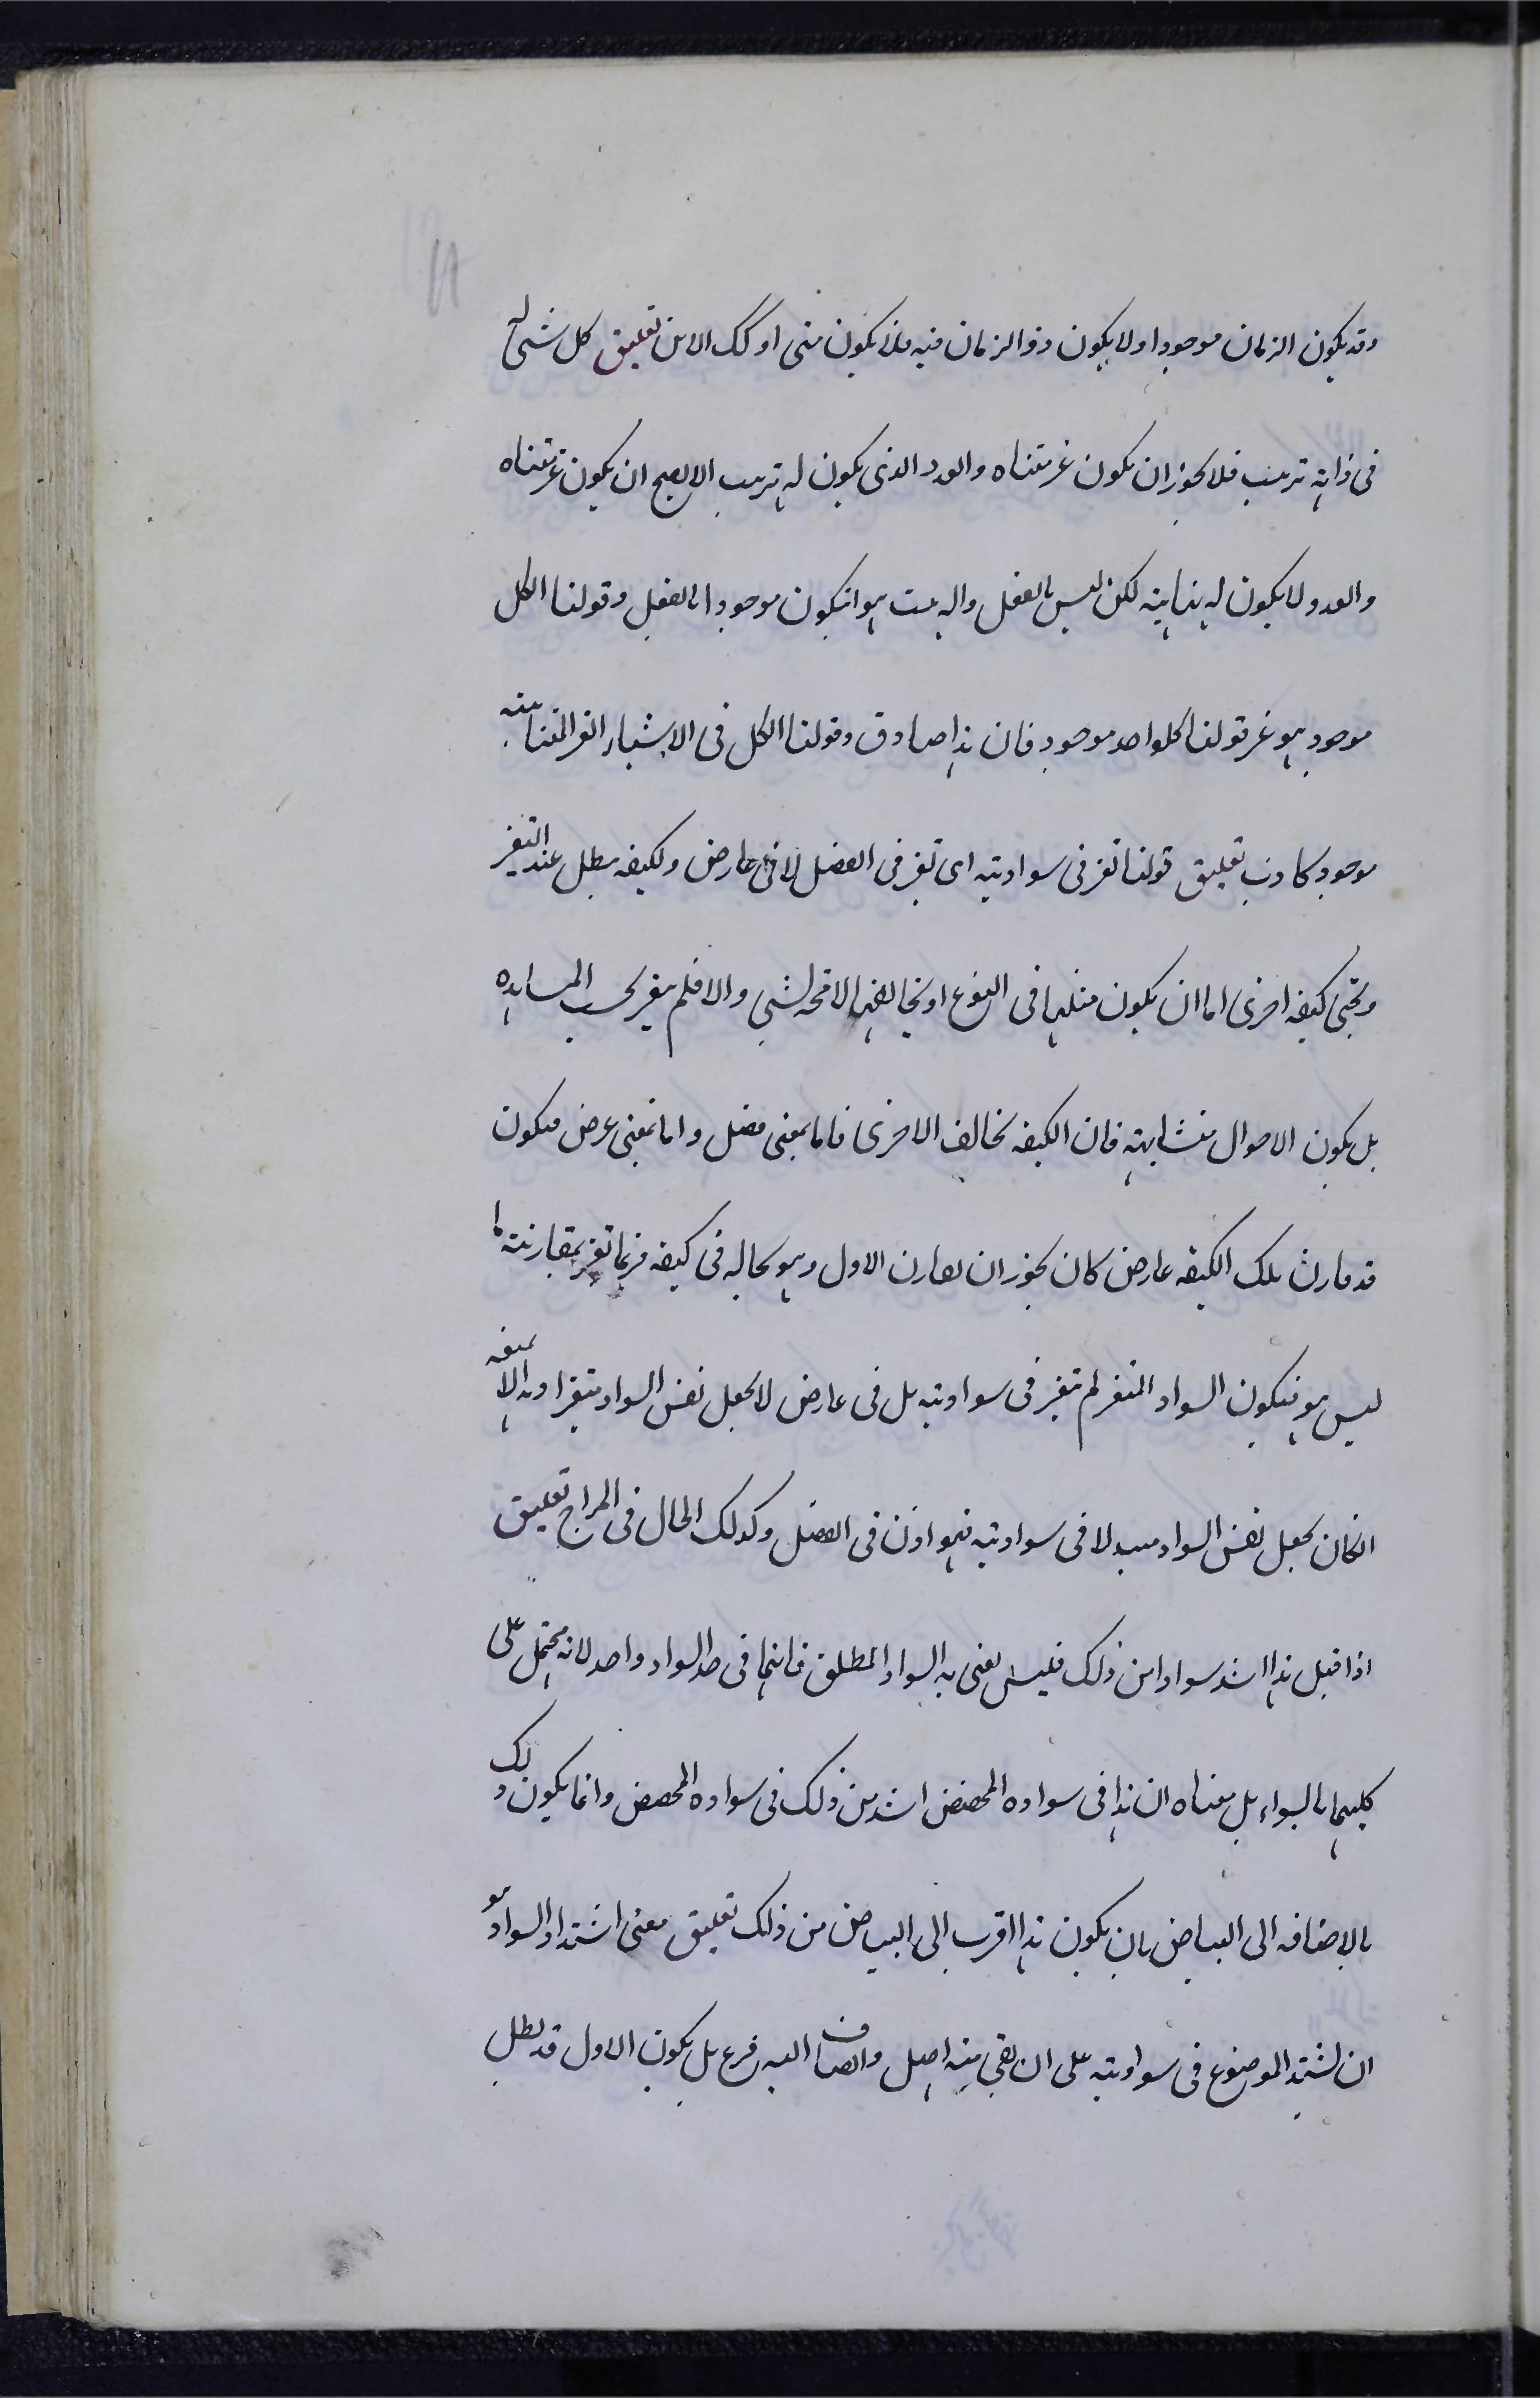 وقد يكون الزمان موجودا ولا يكون ذو الزمان فيه فلا يكون متى او كك الاين تعليق كل شئ له
فى ذاته ترتيب فلا يجوز ان يكون غير متناه والعدد الذى يكون له ترتيب الا يصح ان يكون غير متناه
والعدد لا يكون له نهاية لكن ليس بالفعل والترتيب هو انيكون موجودا بالفعل وقولنا الكل
موجود هو غير قولنا كلواحد موجود فان هذا صادق وقولنا الكل فى الاشياء الغير المتناهية
موجود كاذب تعليق قولنا تغير فى سواديته اى تغير فى الفصل لا فى عارض والكيفه يبطل عند التغير
ويجئ كيفه اخرى اما ان يكون مثلها فى النوع او يخالفها لا محه لشئ والا فلم يتغير بحسب المشاهده
بل يكون الاحوال متشابهة فان الكيفه تخالف الاخرى فاما بمعنى فصل واما بمعنى عرض فيكون
قد قارن تلك الكيفه عارض كان يجوز ان يقارن الاول وهو بحاله فى كيفه فربما تغير بمقارنته ما
ليس هو فيكون السواد المتغير لم يتغير فى سواديته بل فى عارض لا يجعل نفس السواد متغيرا وهذا لا نمنعه
انكان يجعل نفس السواد مبدلا فى سواديته فهو اذن فى الفصل وكذلك الحال فى المزاج تعليق
اذا قيل هذا اشد سوادا من ذلك فليس يعنى به السواد المطلق فانهما فى حد السواد واحد لانه محتمل على
كليهما بالسواء بل معناه ان هذا فى سواده المخصص اشد من ذلك فى سواده المخصص وانما يكون ذلك
بالاضافه الى البياض بان يكون هذا اقرب الى البياض من ذلك تعليق معنى اشتداد السواد هو
ان يشتد الموضوع فى سواديته على ان يبقى منه اصل وانضاف اليه فرع بل يكون الاول قد بطل